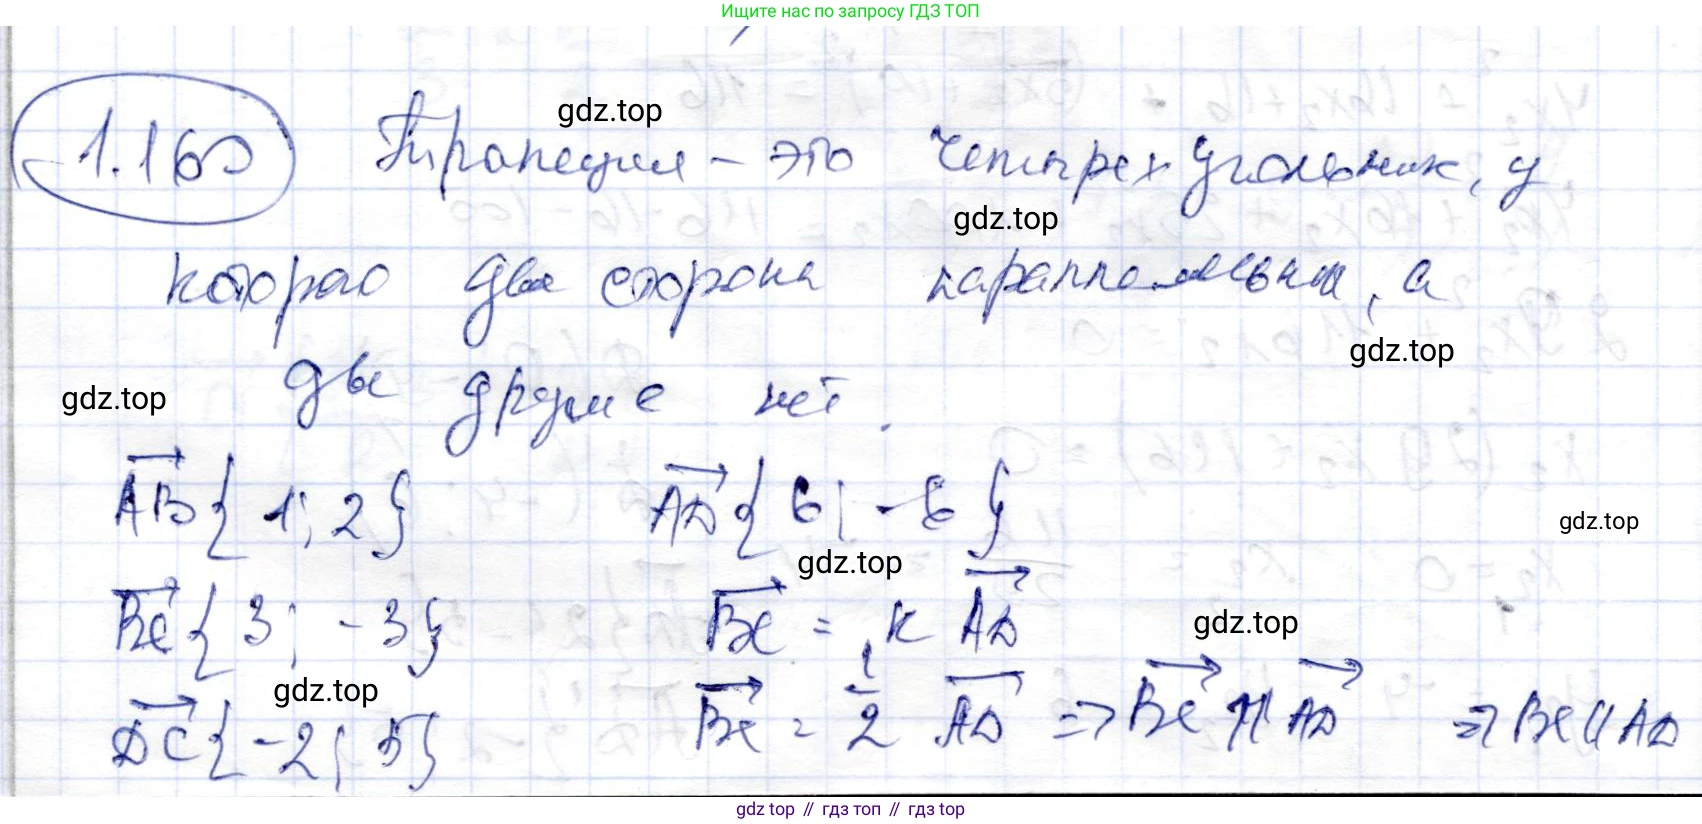 Ищите нас по запросу ГДЗ ТОП
1.160 Трапеция – это четырехугольник, у
gdz.top
gdz.top
которого две стороны параллельны, а
gdz.top
две другие нет.
gdz.top
AB{1; 2} AD{6; -6}
gdz.top
gdz.top
BC{3; -3} BC = k AD
gdz.top
gdz.top
DC{-2; 5} BC = 1/2 AD => BC ⇈ AD => BC || AD
gdz top // гдз топ // gdz top